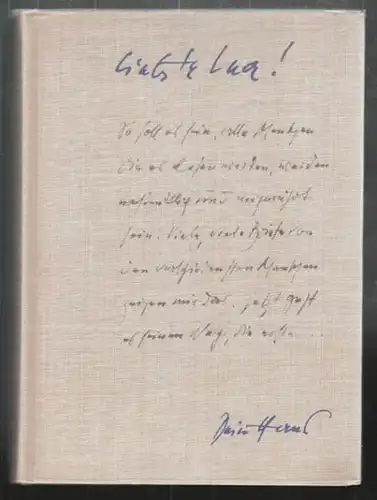 Liebste Lua!
So soll es sein, alle Menschen
die es lesen werden, werden
und
sein. Viele, viele Briefe von
den verschiedensten Menschen
zeigen mir das. Jetzt geht
es seinen Weg, die erste...
Dein Hans